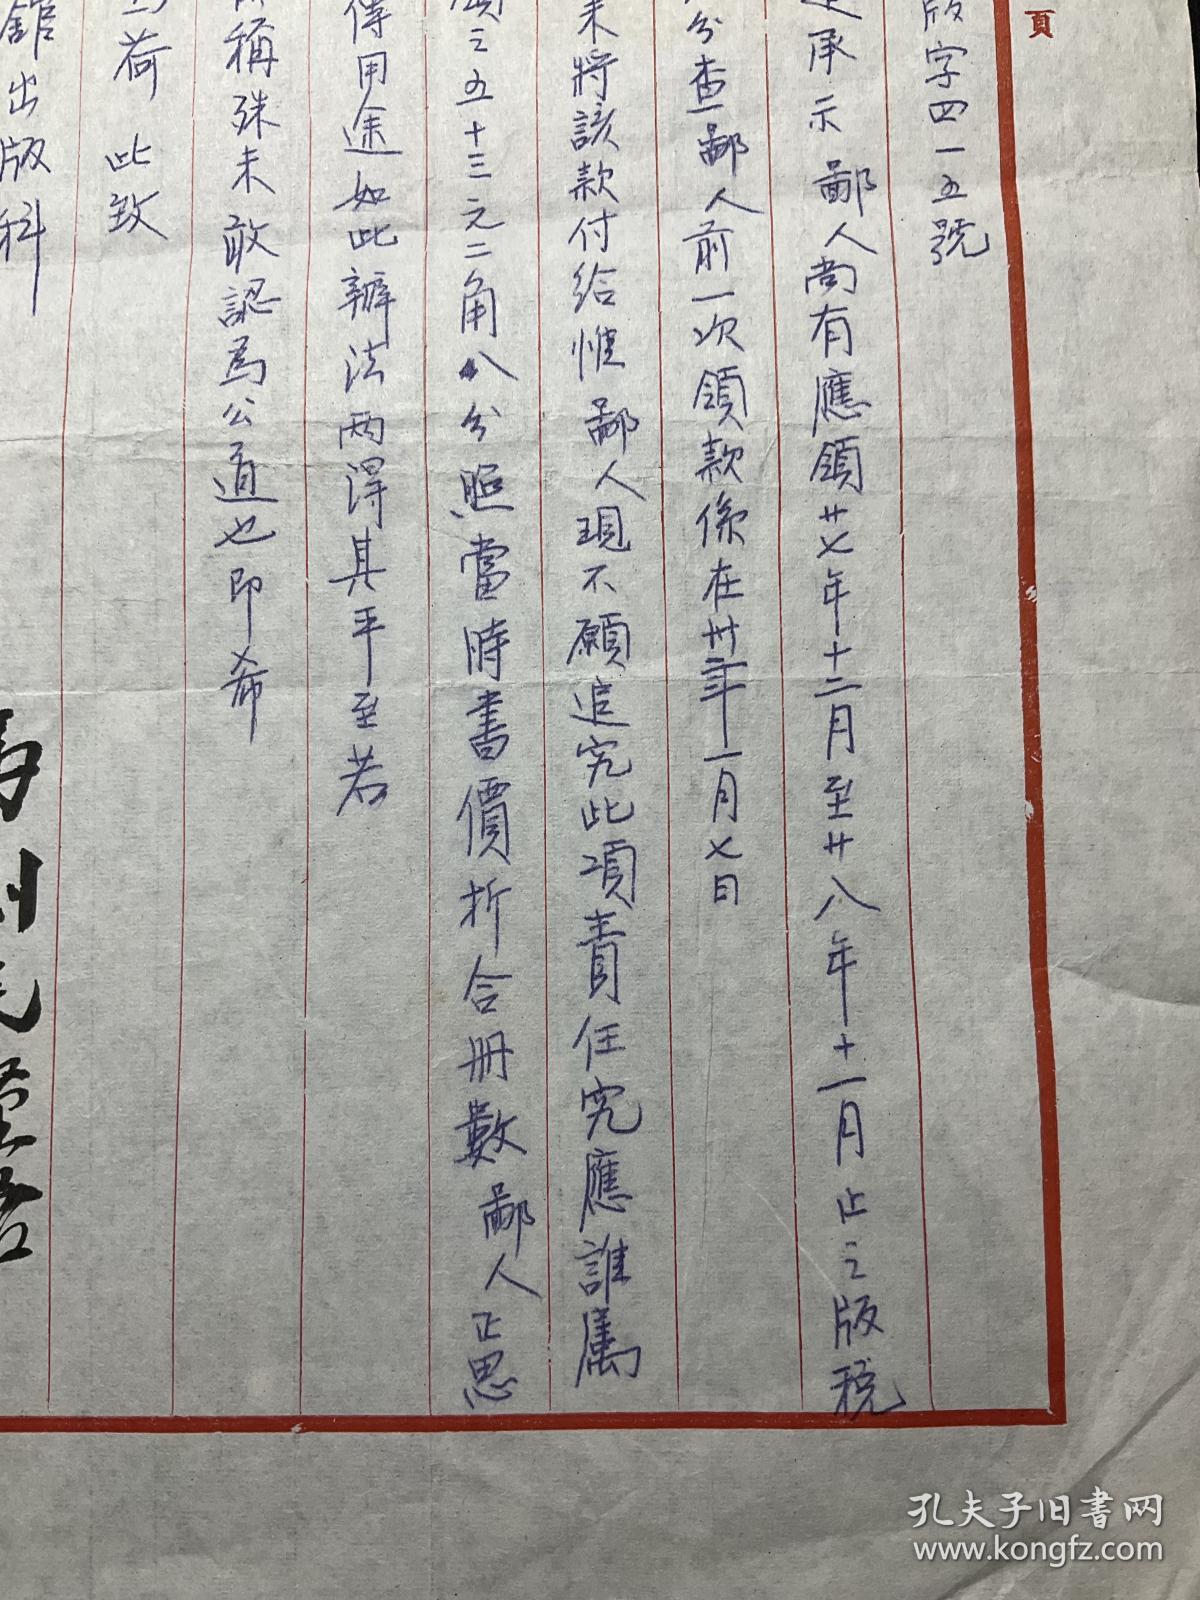 頁
版字四一五號
承示鄙人尚有應領廿七年十二月至廿八年十一月止之版稅
分查鄙人前一次領款係在廿八年一月七日
未將該款付給惟鄙人現不願追究此項責任究應誰屬
領之五十三元二角八分照當時書價折合冊數鄙人正思
得用途如此辦法兩得其平至若
稱殊未敢認為公道也即希
為荷 此致
館出版科
孔夫子旧书网
www.kongfz.com